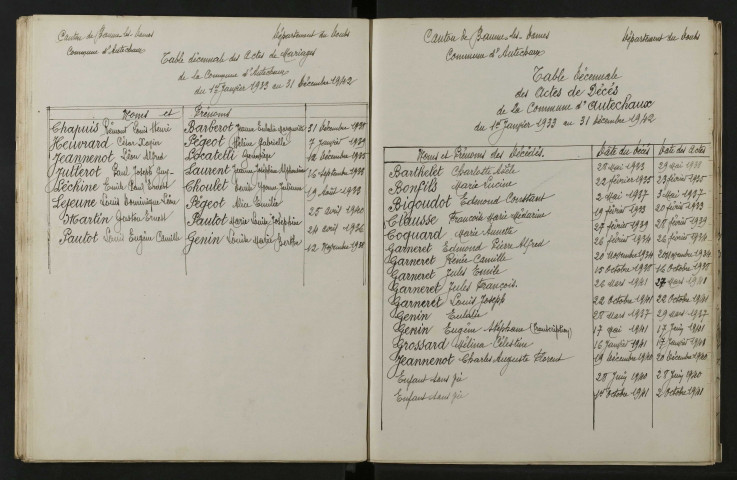 Canton de Baume-les-Dames Département du Doubs
Commune d'Autechaux
Table décennale des Actes de Mariages
de la Commune d'Autechaux
du 1er Janvier 1933 au 31 Décembre 1942
Noms et Prénoms
Chapuis Louis Barberot Jeanne 31 Décembre
Heuvrard César Xavier Pégeot Gabrielle 7 Janvier
Jeannenot Léon Alfred Locatelli 12 Décembre 1935
Jullerot Paul Joseph Guy Laurent Jeanne Joséphine 16 Septembre
Léchine Emile Paul Choulet Yvonne Juliane 19 Août 1933
Lejeune Louis Dominique Léon Pégeot Alice 20 avril 1940
Martin Gaston Ernest Pautot Marie Louise Joséphine 24 avril 1936
Pautot Louis Eugène Camille Genin Louise Marie Berthe 12 Novembre
Canton de Baume-les-Dames Département du Doubs
Commune d'Autechaux
Table Décennale
des Actes de Décès
de la Commune d'Autechaux
du 1er Janvier 1933 au 31 Décembre 1942
Noms et Prénoms des Décédés. Date du Décès Date des Actes
Barthelet Charlotte Adèle 28 Mai 1933 29 Mai 1933
Bonfils Marie Lucine 22 février 1935 23 février 1935
Bigoudot Edmond Constant 2 Mai 1937 3 Mai 1937
Clausse François Marie 19 février 1933 20 février 1933
Coquard Marie Annette 27 février 1939 28 février 1939
Garneret Edmond Pierre Alfred 26 février 1934 26 février 1934
Garneret Renée Camille 20 Novembre 1934 20 Novembre 1934
Garneret Jules Emile 15 Octobre 1938 16 Octobre 1938
Garneret Jules François 26 Mars 1941 27 Mars 1941
Garneret Louis Joseph 22 Octobre 1941 22 Octobre 1941
Genin Eulalie 28 Mars 1937 29 Mars 1937
Genin Eugène Stéphane (Transcription) 17 Mai 1941 17 Juin 1941
Grossard Mélina Célestine 16 Janvier 1941 17 Janvier 1941
Jeannenot Charles Auguste Florent 19 Décembre 1940 20 Décembre 1940
Enfant sans vie 28 Juin 1940 28 Juin 1940
Enfant sans vie 1er Octobre 1941 2 Octobre 1941